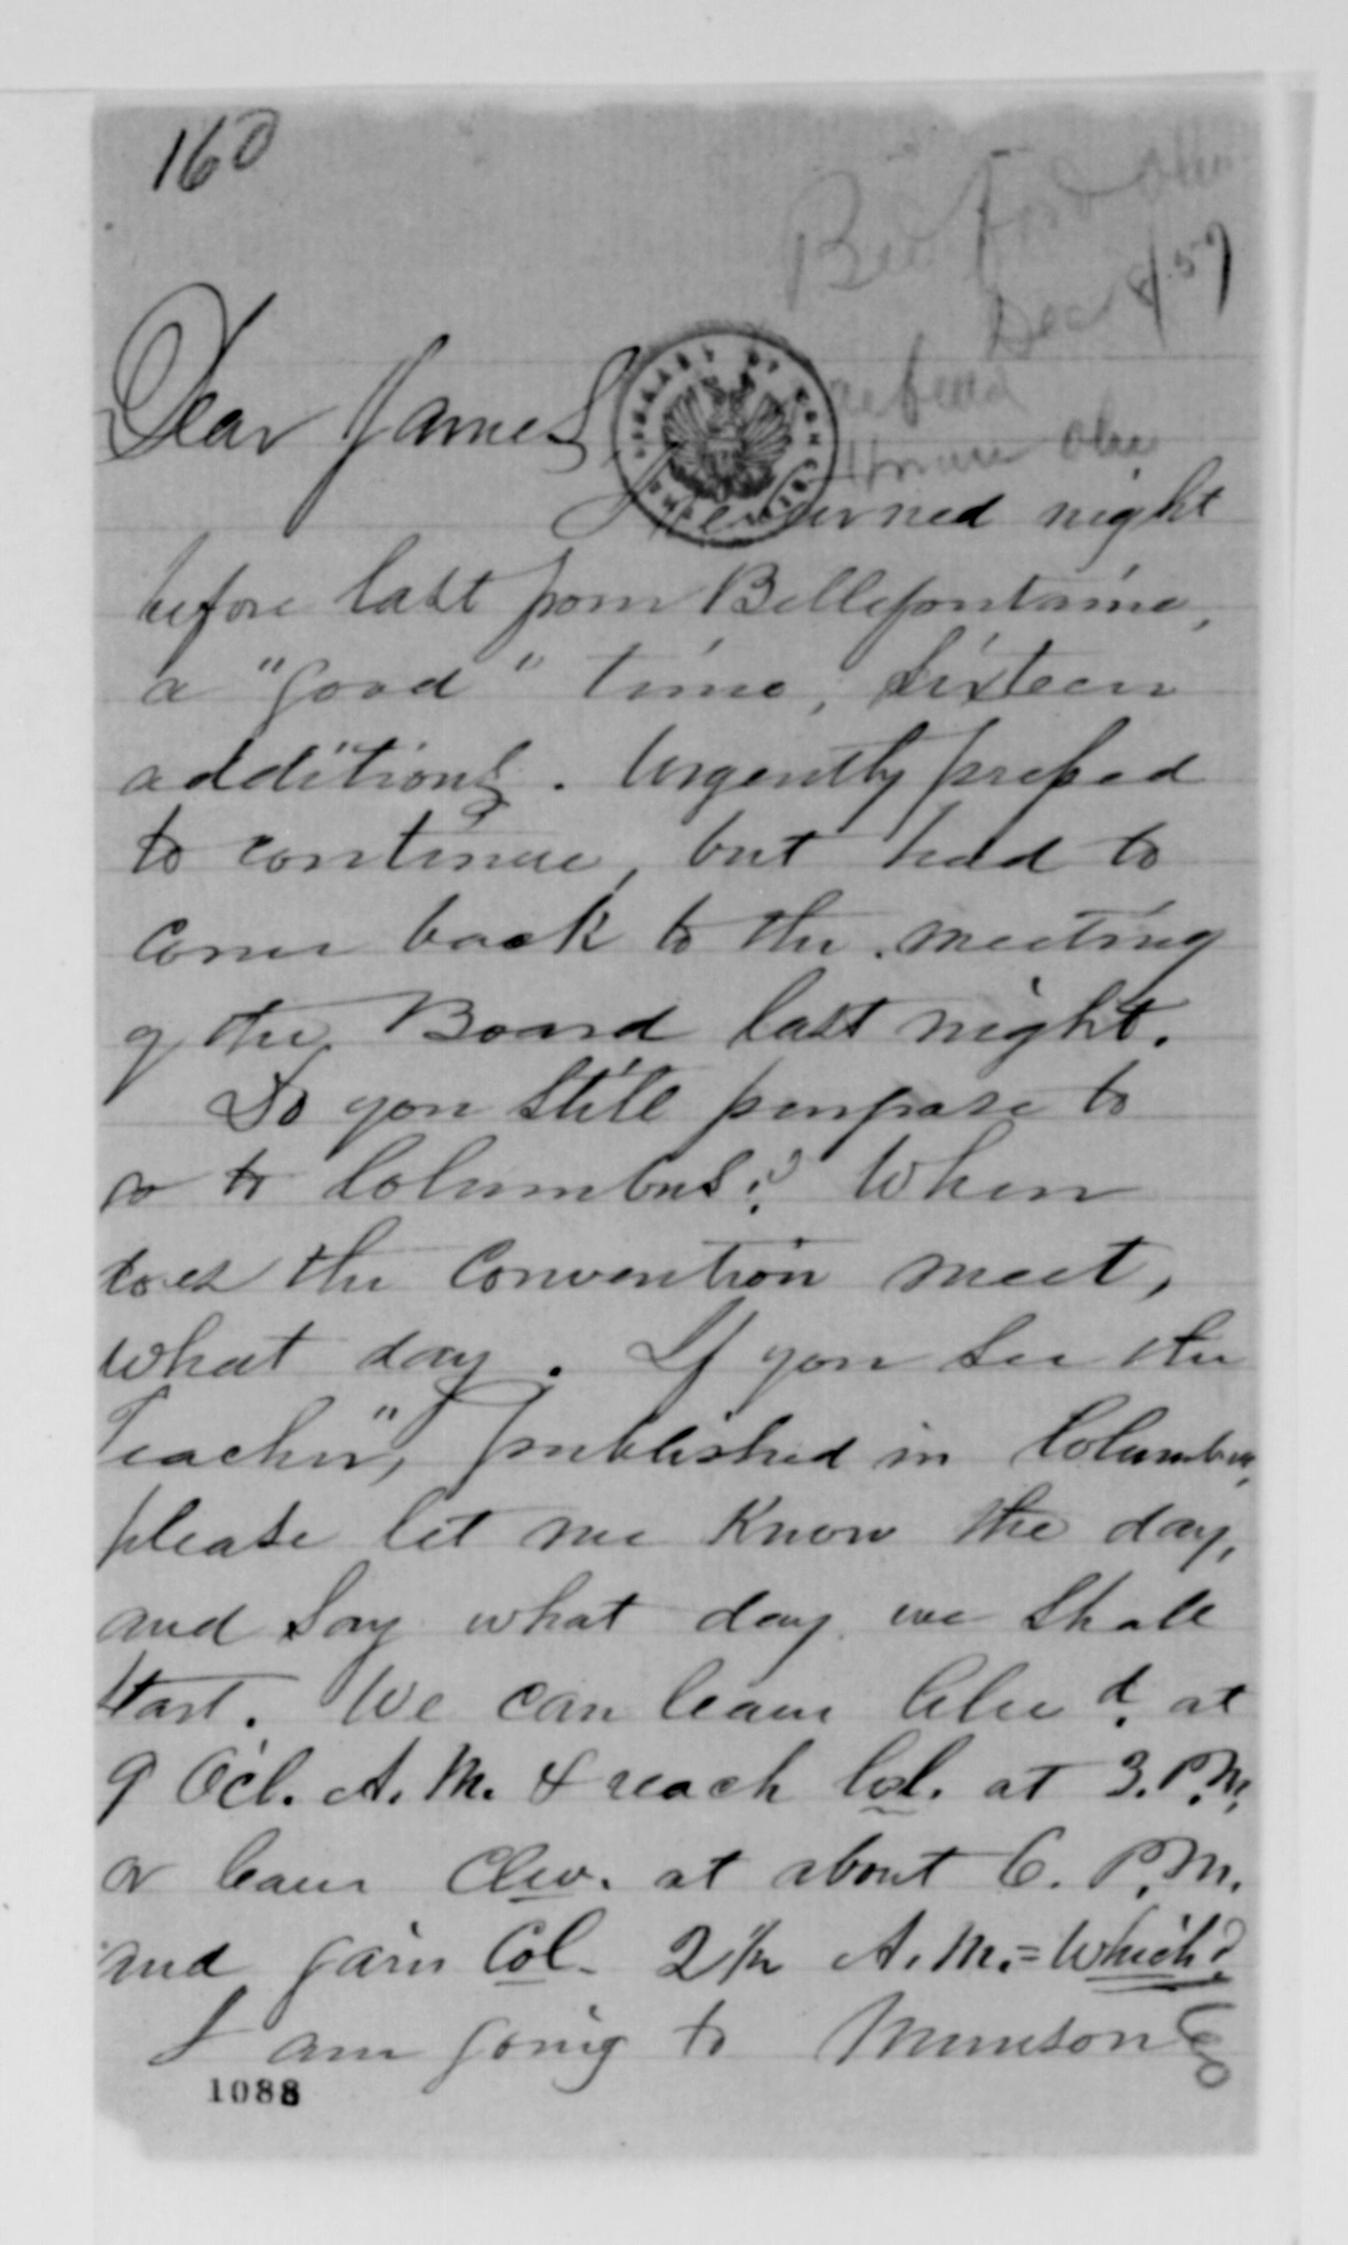 160
Bedford Ohio
Dec 8/57
Dear James,
I returned night
before last from Bellefontaine,
a "good" time, sixteen
additions. Urgently pressed
to continue, but had to
come back to the meeting
of the Board last night.
Do you still purpose to
go to Columbus? When
does the Convention meet,
what day. If you see the
Teacher", published in Columbus,
please let me know the day,
and say what day we shall
start. We can leave Clevd. at
9 Ocl. A.M. & reach Col. at 3. P.M.
or leave Clev. at about 6. P.M.
and gain Col. 2 1/2 A.M. = Which?
I am going to Munson
1088